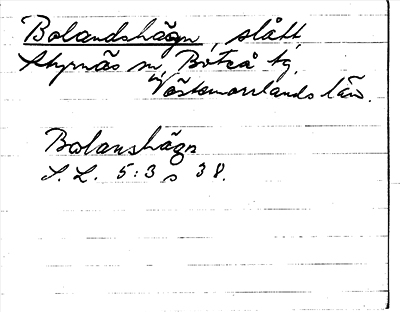 Bolandshägn, slått,
Styrnäs sn, Boteå tg,
Västernorrlands län.
Bolanshägn
S. L. 5:3 s 38.